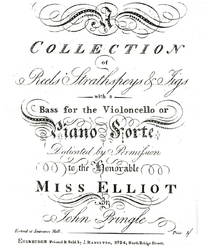 A
COLLECTION
of
Reels Strathspeys & Jigs
with a
Bass for the Violoncello or
Piano Forte
Dedicated by Permission
to the Honorable
MISS ELLIOT
By
John Pringle
Entered at Stationers Hall. Price
EDINBURGH Printed & Sold by J. HAMILTON, North Bridge Street.